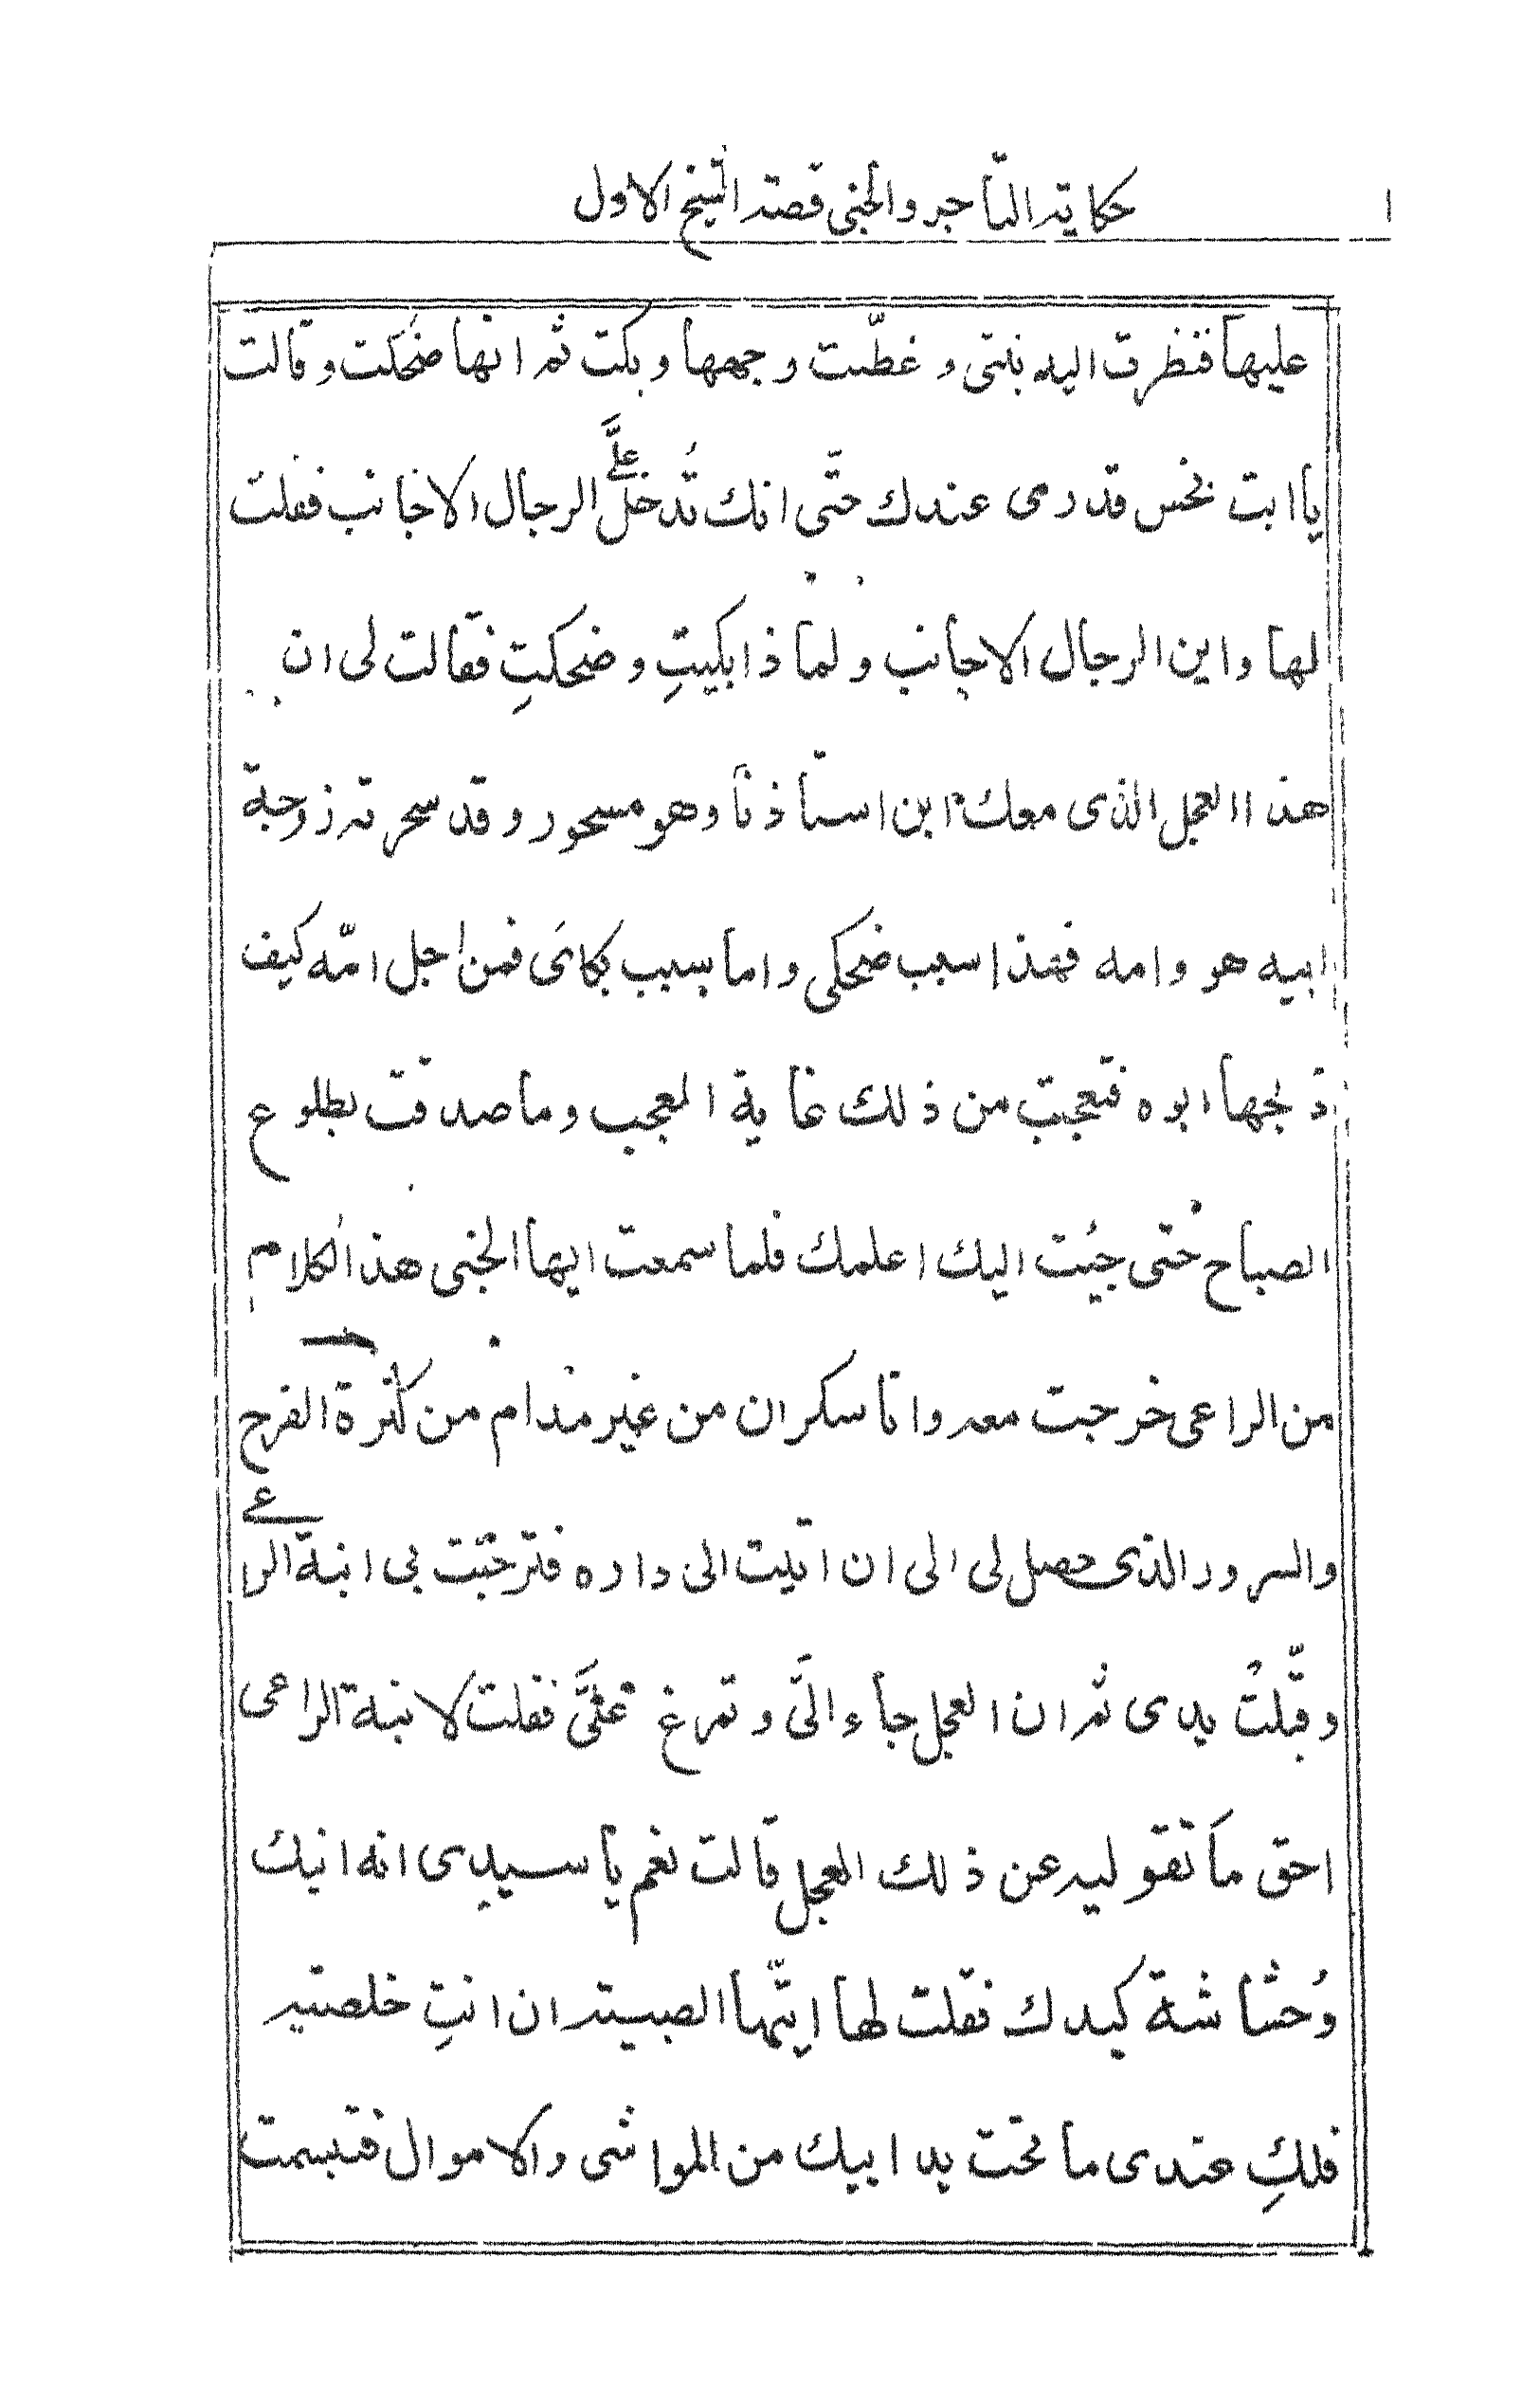 حكاية التاجر والجني قصة الشيخ الاول ١
عليها فنظرت اليه بنتي و غطّت وجهها و بكت ثم انها ضحكت و قالت
يا ابت بخس قدرى عندك حتّى انك تُدخل علىَّ الرجال الاجانب فقلت
لها و اين الرجال الاجانب و لما ذا بكيتِ و ضحكتِ فقالت لى ان
هذا العجل الذى معك ابن استاذنا و هو مسحور و قد سحرته زوجة
ابيه هو و امه فهذا سبب ضحكى و اما سبب بكاىَ فمن اجل امّه كيف
ذبحها ابوه فتعجبت من ذلك غاية العجب و ما صدقت بطلوع
الصباح حتى جيُت اليك اعلمك فلما سمعت ايها الجنى هذا الكلام
من الراعى خرجت معه و انا سكران من غير مدام من كثرة الفرح
و السرور الذى حصل لى الى ان اتيت الى داره فترحّبت بى ابنة الراعى
و قبّلتُ يدى ثم ان العجل جاء الىَّ و تمرغ علىَّ فقلت لابنة الراعى
احق ما تقوليه عن ذلك العجل قالت نعم يا سيدى انه ابنك
وُحشاشة كبدك فقلت لها ايّتها الصبية ان انتِ خلصتيه
فلكِ عندى ما تحت يد ابيك من المواشى و الاموال فتبسمت